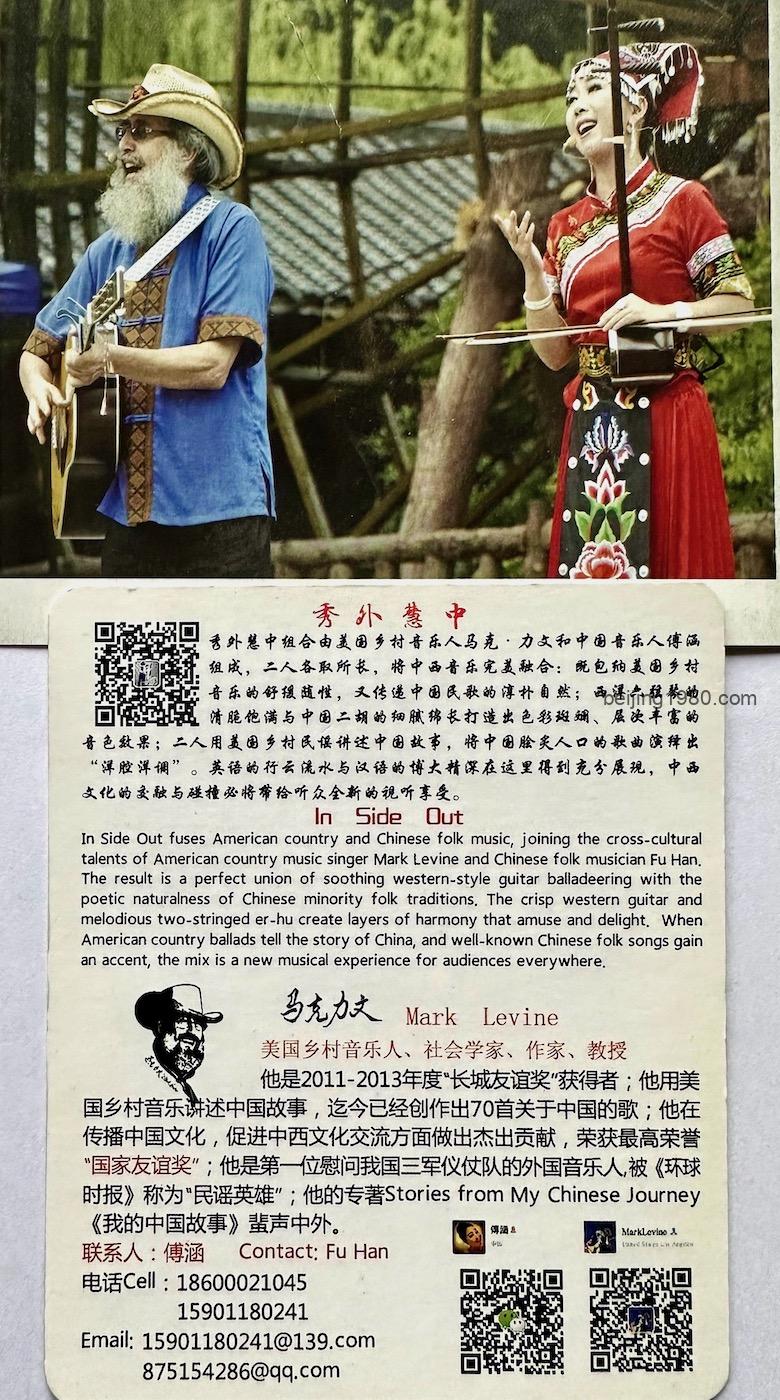 秀外慧中
秀外慧中组合由美国乡村音乐人马克·力文和中国音乐人傅涵
组成，二人各取所长，将中西音乐完美融合：既包纳美国乡村
音乐的舒缓随性，又传递中国民歌的淳朴自然；西洋六弦琴的
beijing1980.com
清脆饱满与中国二胡的细腻绵长打造出色彩斑斓、层次丰富的
音色效果；二人用美国乡村民谣讲述中国故事，将中国脍炙人口的歌曲演绎出
“洋腔洋调”。英语的行云流水与汉语的博大精深在这里得到充分展现，中西
文化的交融与碰撞必将带给听众全新的视听享受。
In Side Out
In Side Out fuses American country and Chinese folk music, joining the cross-cultural
talents of American country music singer Mark Levine and Chinese folk musician Fu Han.
The result is a perfect union of soothing western-style guitar balladeering with the
poetic naturalness of Chinese minority folk traditions. The crisp western guitar and
melodious two-stringed er-hu create layers of harmony that amuse and delight. When
American country ballads tell the story of China, and well-known Chinese folk songs gain
an accent, the mix is a new musical experience for audiences everywhere.
马克力文 Mark Levine
美国乡村音乐人、社会学家、作家、教授
他是2011-2013年度“长城友谊奖”获得者；他用美
国乡村音乐讲述中国故事，迄今已经创作出70首关于中国的歌；他在
传播中国文化，促进中西文化交流方面做出杰出贡献，荣获最高荣誉
“国家友谊奖”；他是第一位慰问我国三军仪仗队的外国音乐人,被《环球
时报》称为“民谣英雄”；他的专著Stories from My Chinese Journey
《我的中国故事》蜚声中外。
傅涵
MarkLevine
United States Los Angeles
联系人：傅涵 Contact: Fu Han
电话Cell：18600021045
15901180241
Email: 15901180241@139.com
875154286@qq.com